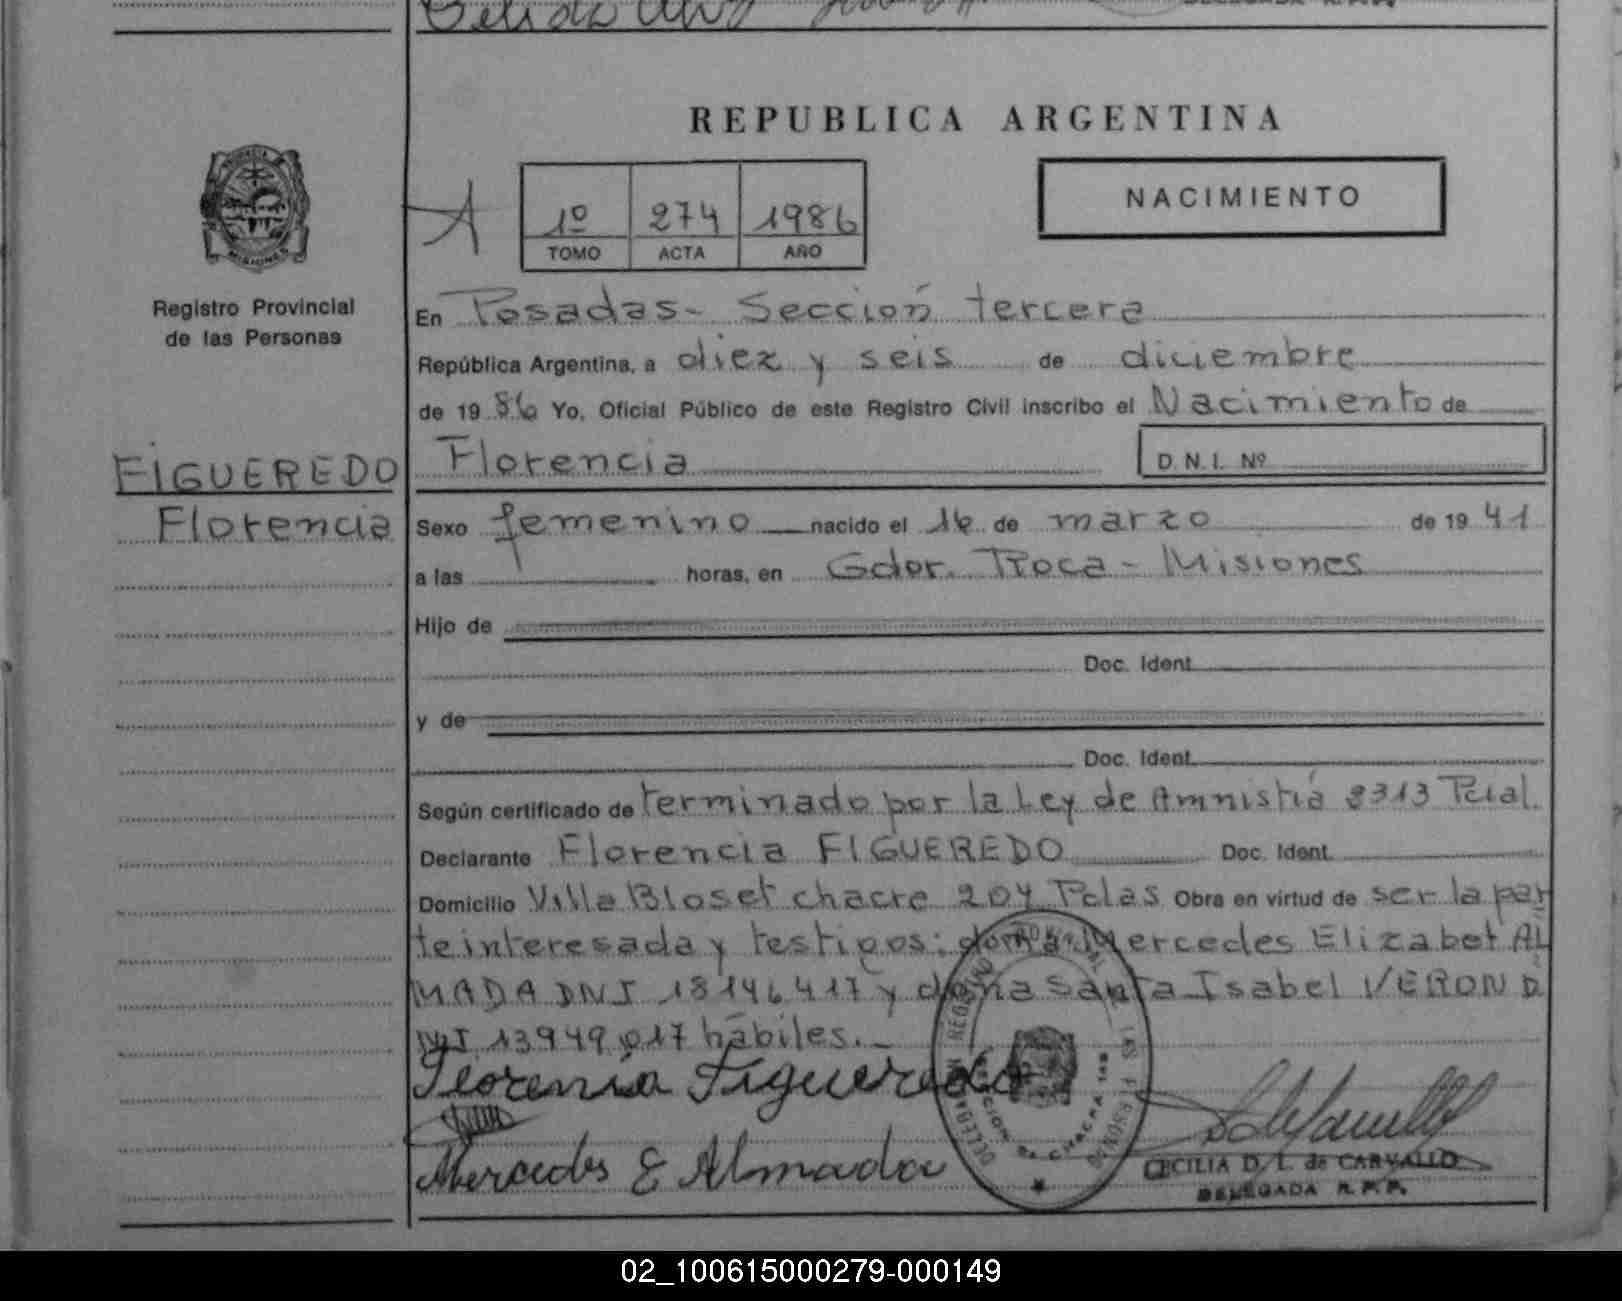 REPUBLICA ARGENTINA
NACIMIENTO
A
1º 274 1986
TOMO ACTA AÑO
PROVINCIA DE MISIONES
Registro Provincial
de las Personas
FIGUEREDO
Florencia
En Posadas - Sección tercera
República Argentina, a diez y seis de diciembre
de 19 86 Yo, Oficial Público de este Registro Civil inscribo el Nacimiento de
Florencia D.N.I. Nº
Sexo femenino nacido el 16 de marzo de 19 41
a las horas, en Gdor. Roca - Misiones
Hijo de
Doc. Ident.
y de
Doc. Ident.
Según certificado de terminado por la Ley de Amnistia 2313 Pcial.
Declarante Florencia FIGUEREDO Doc. Ident.
Domicilio Villa Bloset chacre 204 Pdas Obra en virtud de ser la par
te interesada y testigos: doña Mercedes Elizabet AL
MADA DNI 18146417 y doña Santa Isabel VERON D
NI 13949017 hábiles.-
Florencia Figueredo
Mercedes E Almada
CECILIA D. L. de CARVALLO
DELEGADA R.P.P.
02_100615000279-000149